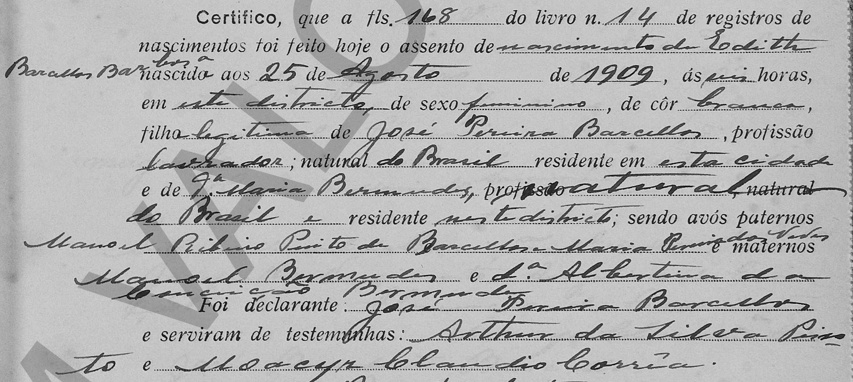 Certifico, que a fls. 168 do livro n. 14 de registros de
nascimentos foi feito hoje o assento de nascimento de Edith
Barcellos Barbosa nascida aos 25 de Agosto de 1909, ás seis horas,
em este districto, de sexo feminino, de côr branca,
filha legitima de José Pereira Barcellos, profissão
lavrador; natural do Brasil residente em esta cidade
e de Dª. Maria Bermudes, profissão natural, natural
do Brasil e residente neste districto; sendo avós paternos
Manoel Ribeiro Pinto de Barcellos e Maria Pereira das Neves e maternos
Manoel Bermudes e dª Albertina da
Conceição Bermudes
Foi declarante: José Pereira Barcellos
e serviram de testemunhas: Arthur da Silva Pein-
to e Moacyr Claudio Corrêa.
VALO